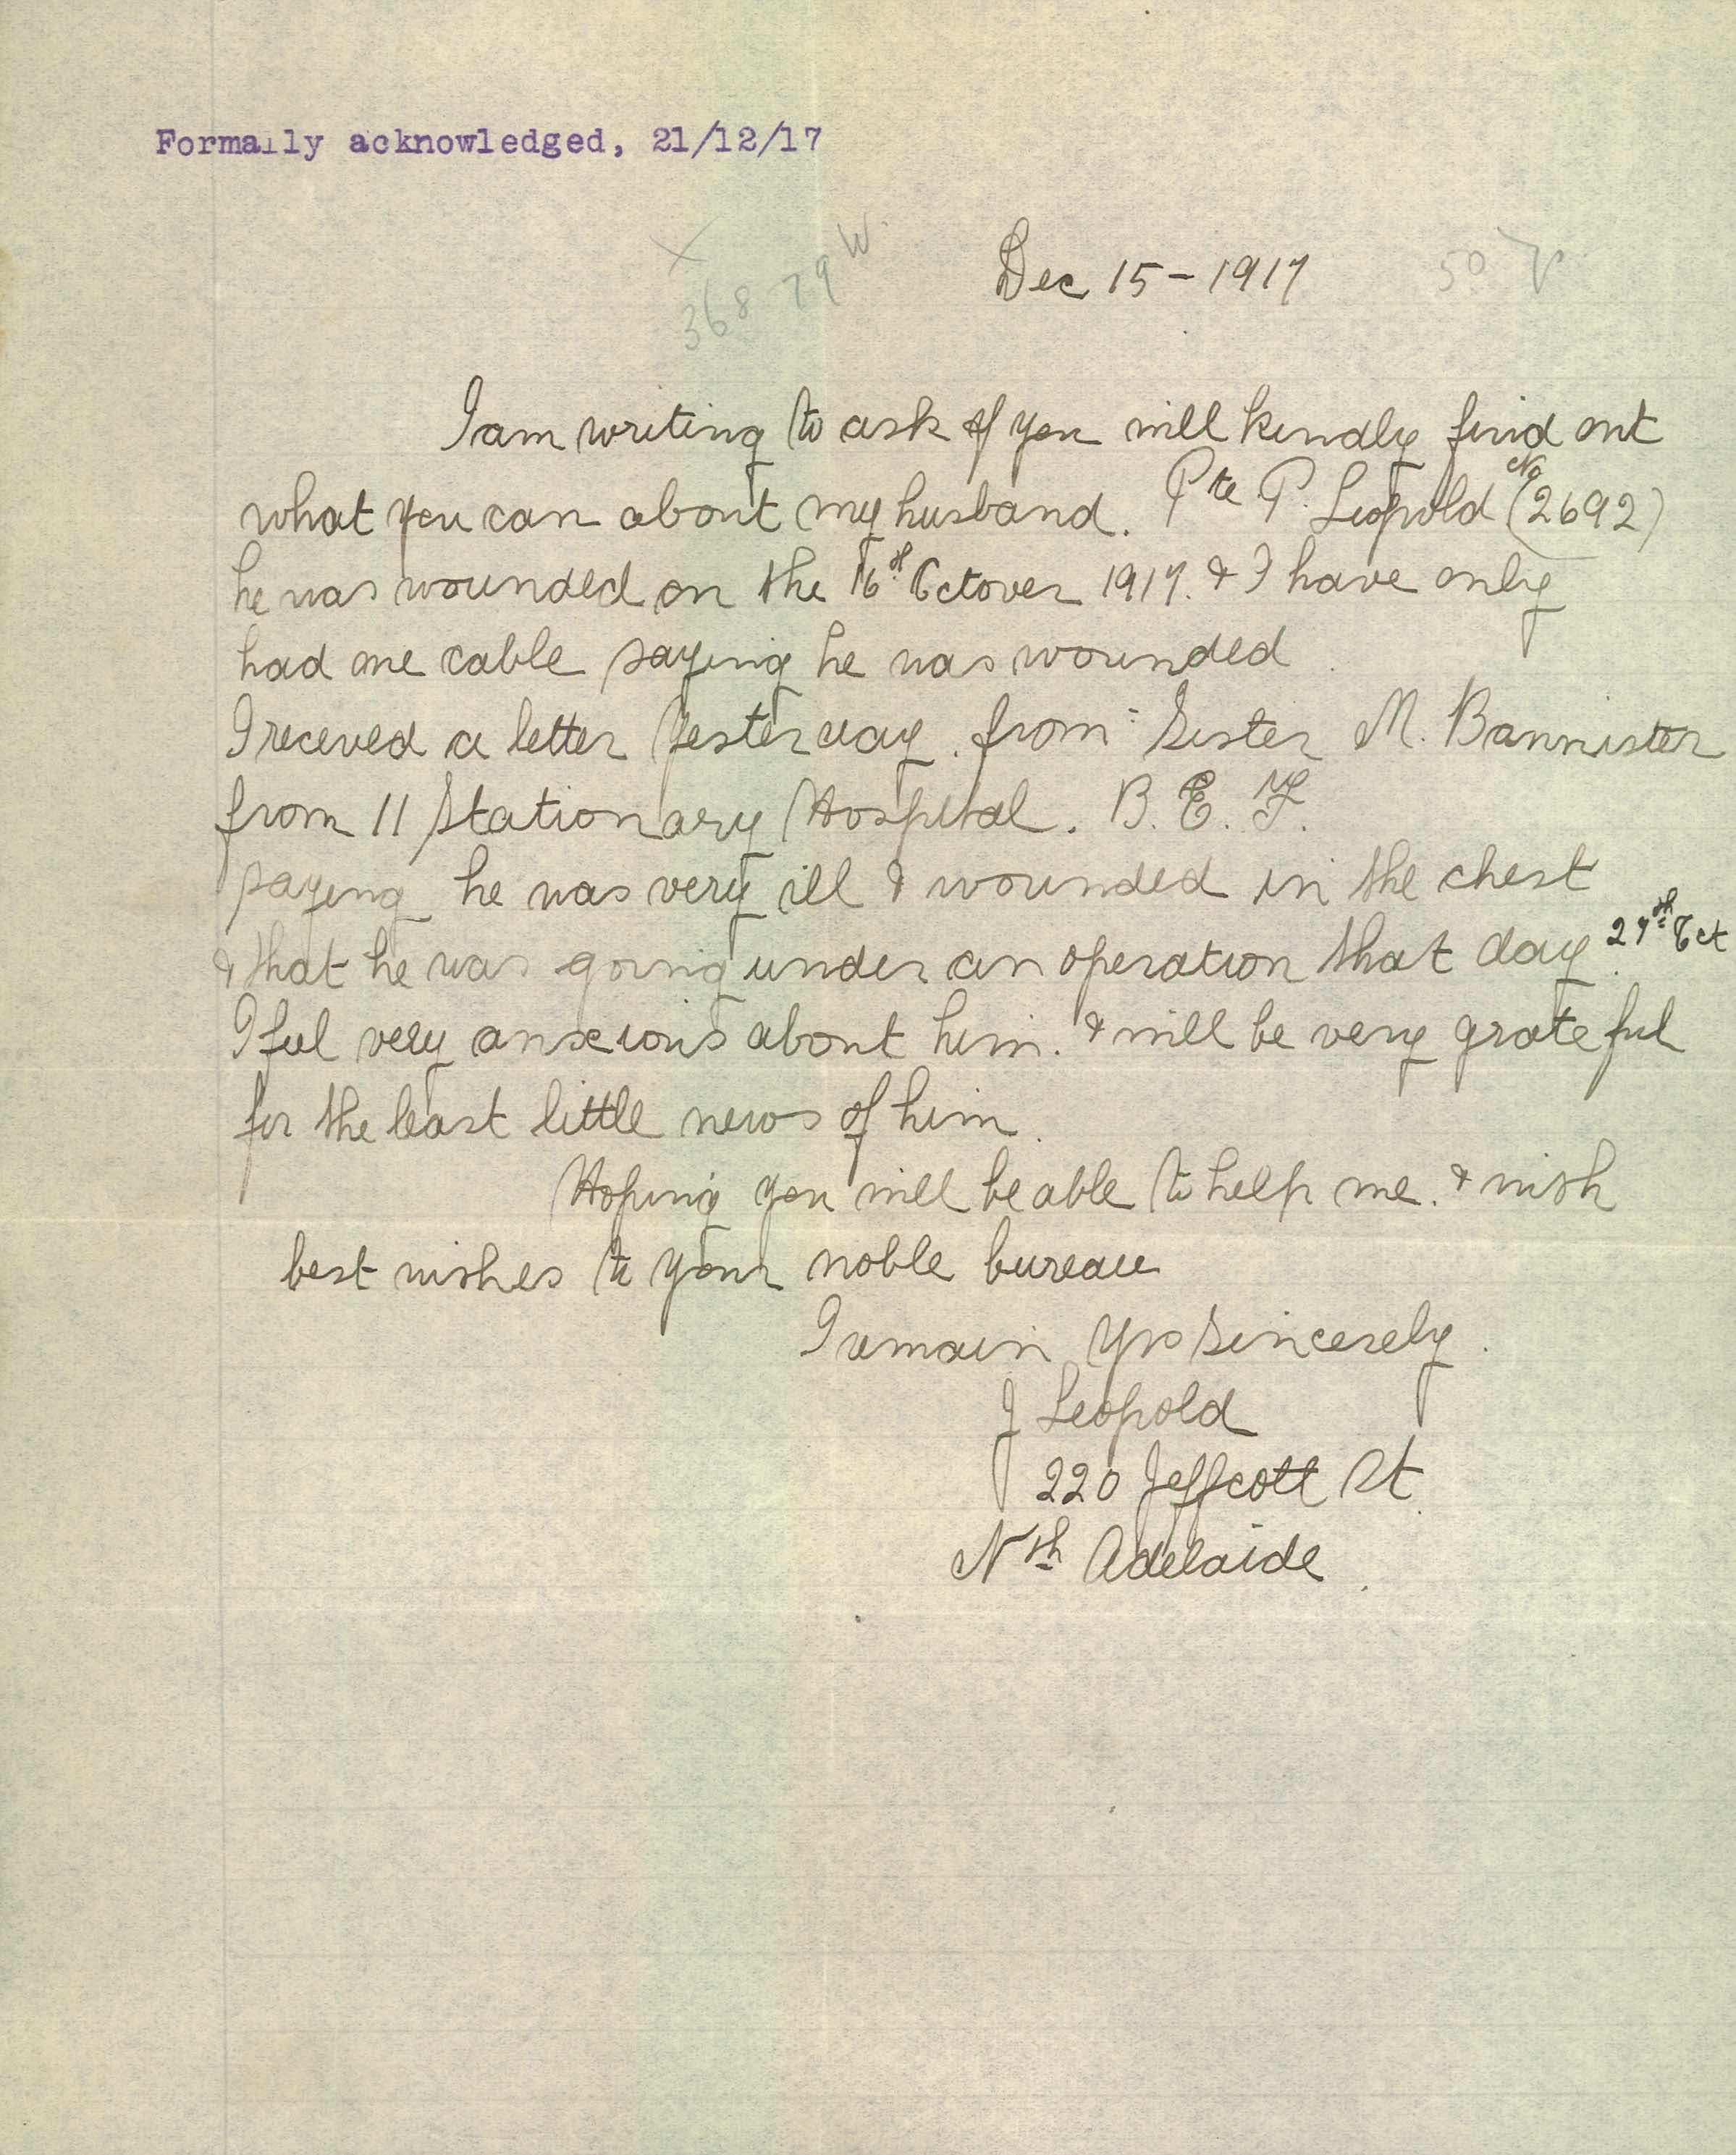 Formally acknowledged, 21/12/17
X
368 79 W
Dec 15 - 1917
50
I am writing to ask if you will kindly find out
what you can about my husband. Pte P. Leopold No (2692)
he was wounded on the 16th Octover 1917. & I have only
had one cable saying he was wounded
I receved a letter yesterday. from Sister M. Bannister
from 11 Stationary Hospital. B. E. F.
saying he was very ill & wounded in the chest
& that he was going under an operation that day. 27th Oct
I feel very anxious about him. & will be very grateful
for the least little news of him.
Hoping you will be able to help me. & with
best wishes to your noble bureau
I remain Yrs Sincerely.
J Leopold
220 Jeffcott St
Nth Adelaide.